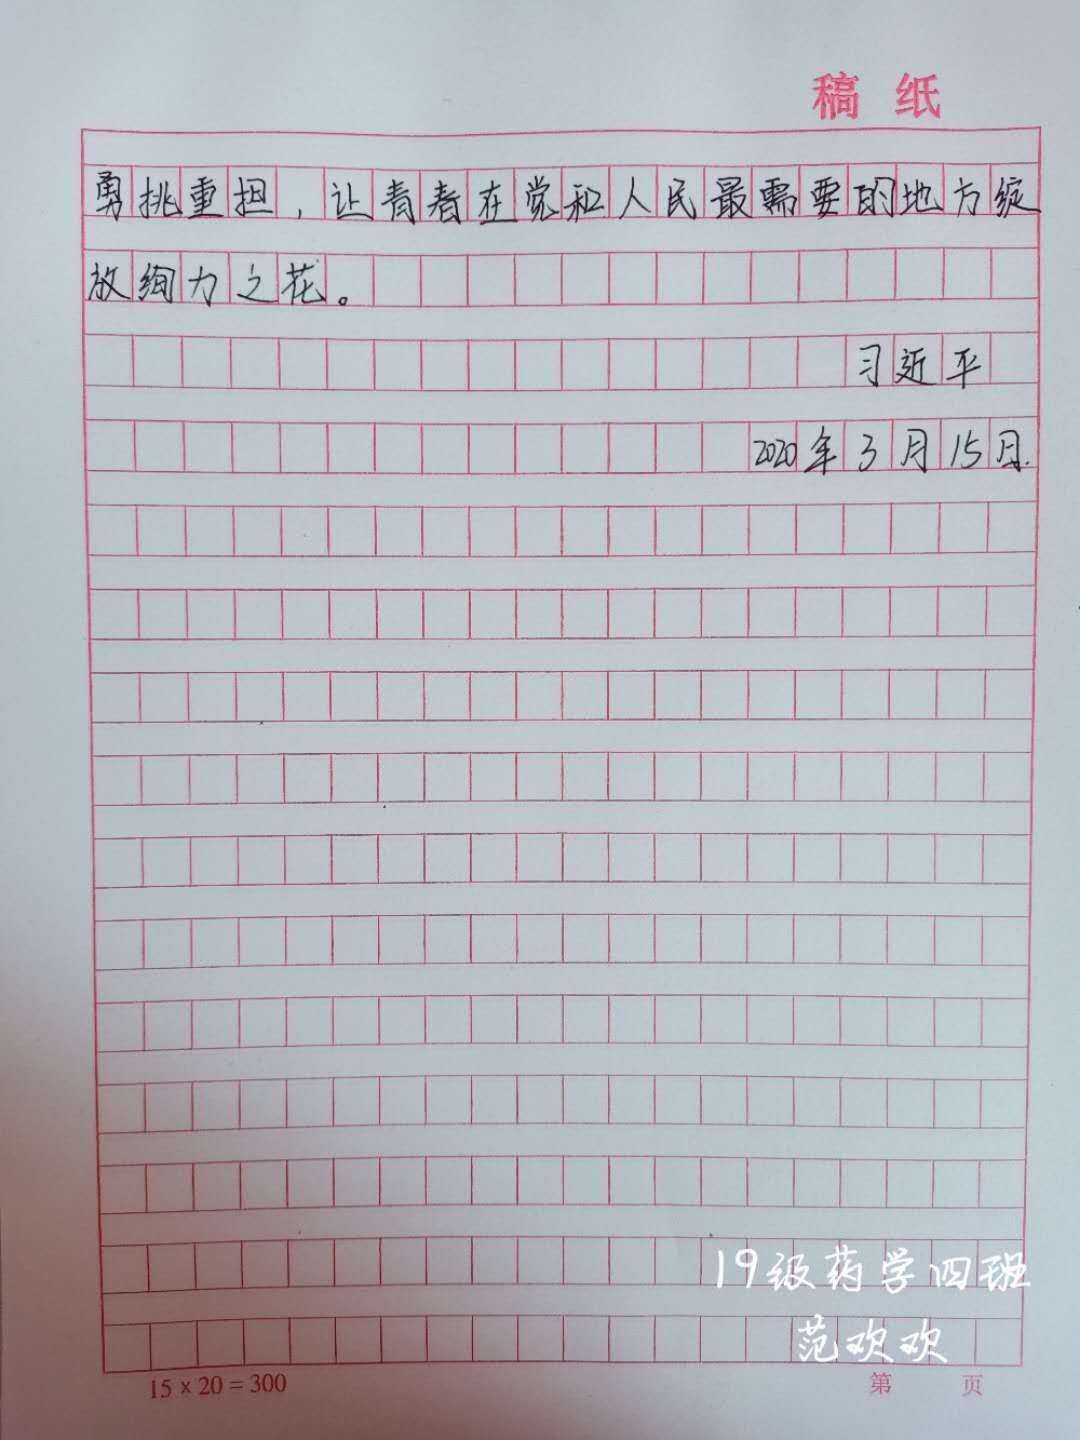 稿 纸
勇挑重担，让青春在党和人民最需要的地方绽
放绚力之花。
习近平
2020年3月15日.
19级药学四班
范欢欢
15×20=300
第 页